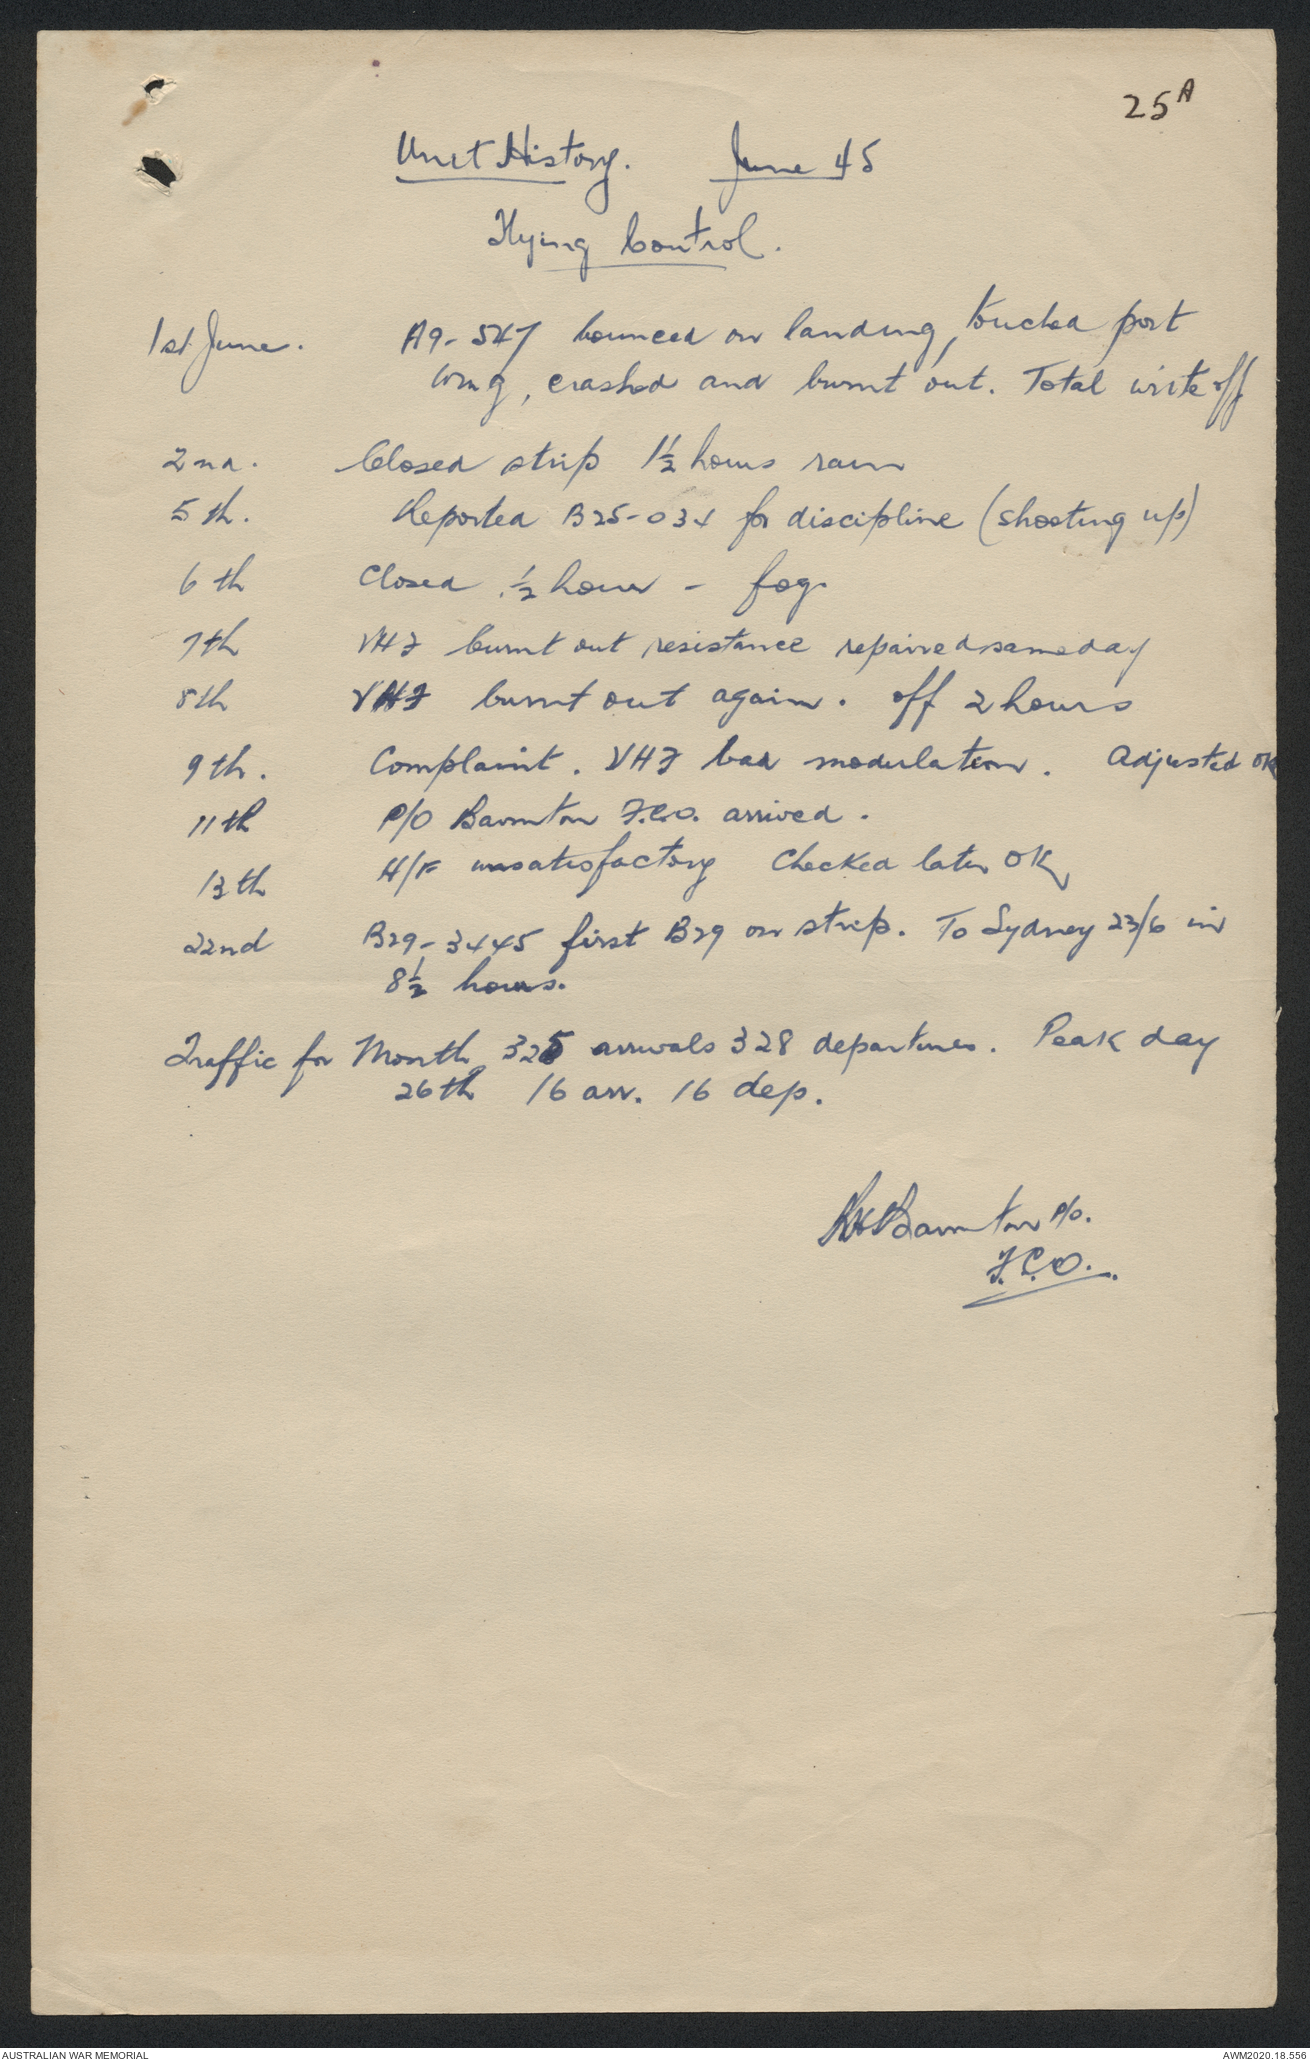 25A
Unit History. June 45
Flying Control.
1st June. A9-547 bounced on landing, touched port
wing, crashed and burnt out. Total write off
2nd. Closed strip 1½ hours rain
5th. Reported B25-034 for discipline (shooting up)
6th Closed ½ hour - fog.
7th VHF burnt out resistance repaired same day
8th VHF burnt out again. off 2 hours
9th. Complaint. VHF bad modulation. Adjusted OK
11th P/O F.C.O. arrived.
13th H/F unsatisfactory Checked later OK
22nd B29-3445 first B29 on strip. To Sydney 23/6 in
8½ hours.
Traffic for Month 325 arrivals 328 departures. Peak day
26th 16 arr. 16 dep.
P/O.
F.C.O.
AUSTRALIAN WAR MEMORIAL AWM2020.18.556